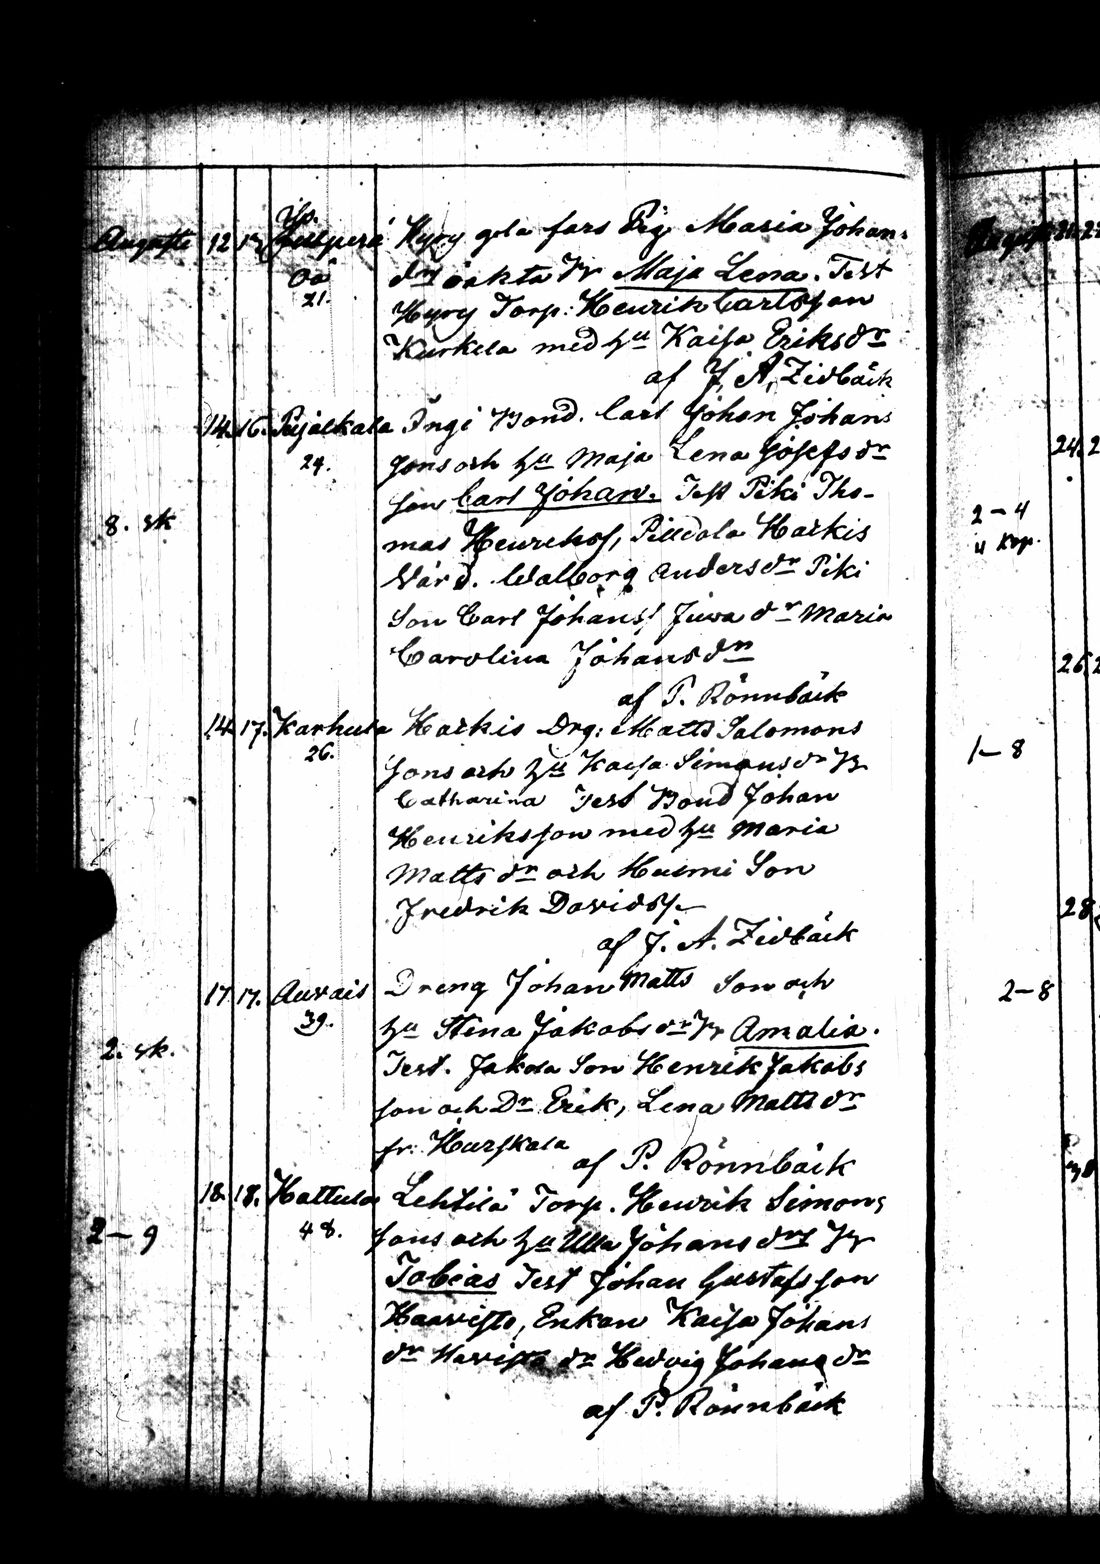 Augusti 12 13 Yp. Kyry gda fars Pig Maria Johans
Oå dr oäkta Br Maja Lena. Test
21. Kyry Torp: Henrik Carlsson
Kurkela med hu Kaisa Eriksdr
af J. A. Zidbäck
14. 16. Pujalkala Ingi Bond. Carl Johan Johans
29. son och hu Maja Lena Josefsdr
son Carl Johan. Test Piki Tho-
8. sk mas Henrikss, Harkis
Värd. Walborg Andersdr Piki
Son Carl Johanss Juva dr Maria
Carolina Johansdr
af P. Rönnbäck
14. 17. Karhula Harkis Drg: Matts Salomons
26. son och hu Kaisa Simonsdr Br
Catharina Test Bond Johan
Henriksson med hu Maria
Mattsdr och Son
Fredrik Davidss
af J. A. Zidbäck
17 17. Auvais Dreng Johan Matts son och
39. hu Stina Jakobsdr Br Amalia.
2. sk. Test. Jakola Son Henrik Jakobs
son och Dr Erik, Lena Mattsdr
fr.
af P. Rönnbäck
18. 18. Hattula Lehtilä Torp. Henrik Simons
2-9 48. son och hu Ulla Johansdr Br
Tobias Test Johan Gustafsson
Haavisto, Enkan Kaisa Johans
dr dr Hedvig Johansdr
af P. Rönnbäck
24. 2
2-4
4 kop.
26. 2
1-8
28
2-8